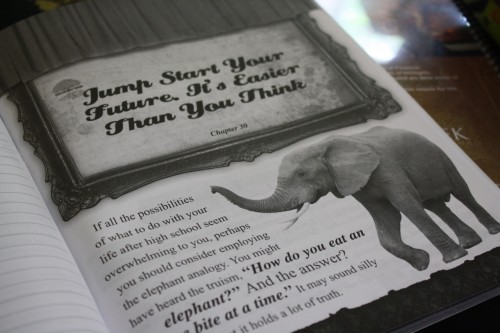 Jump Start Your
Future. It's Easier
Than You Think
Chapter 30
If all the possibilities
of what to do with your
life after high school seem
overwhelming to you, perhaps
you should consider employing
the elephant analogy. You might
have heard the truism, "How do you eat an
elephant?" And the answer?
bite at a time." It may sound silly
it holds a lot of truth.